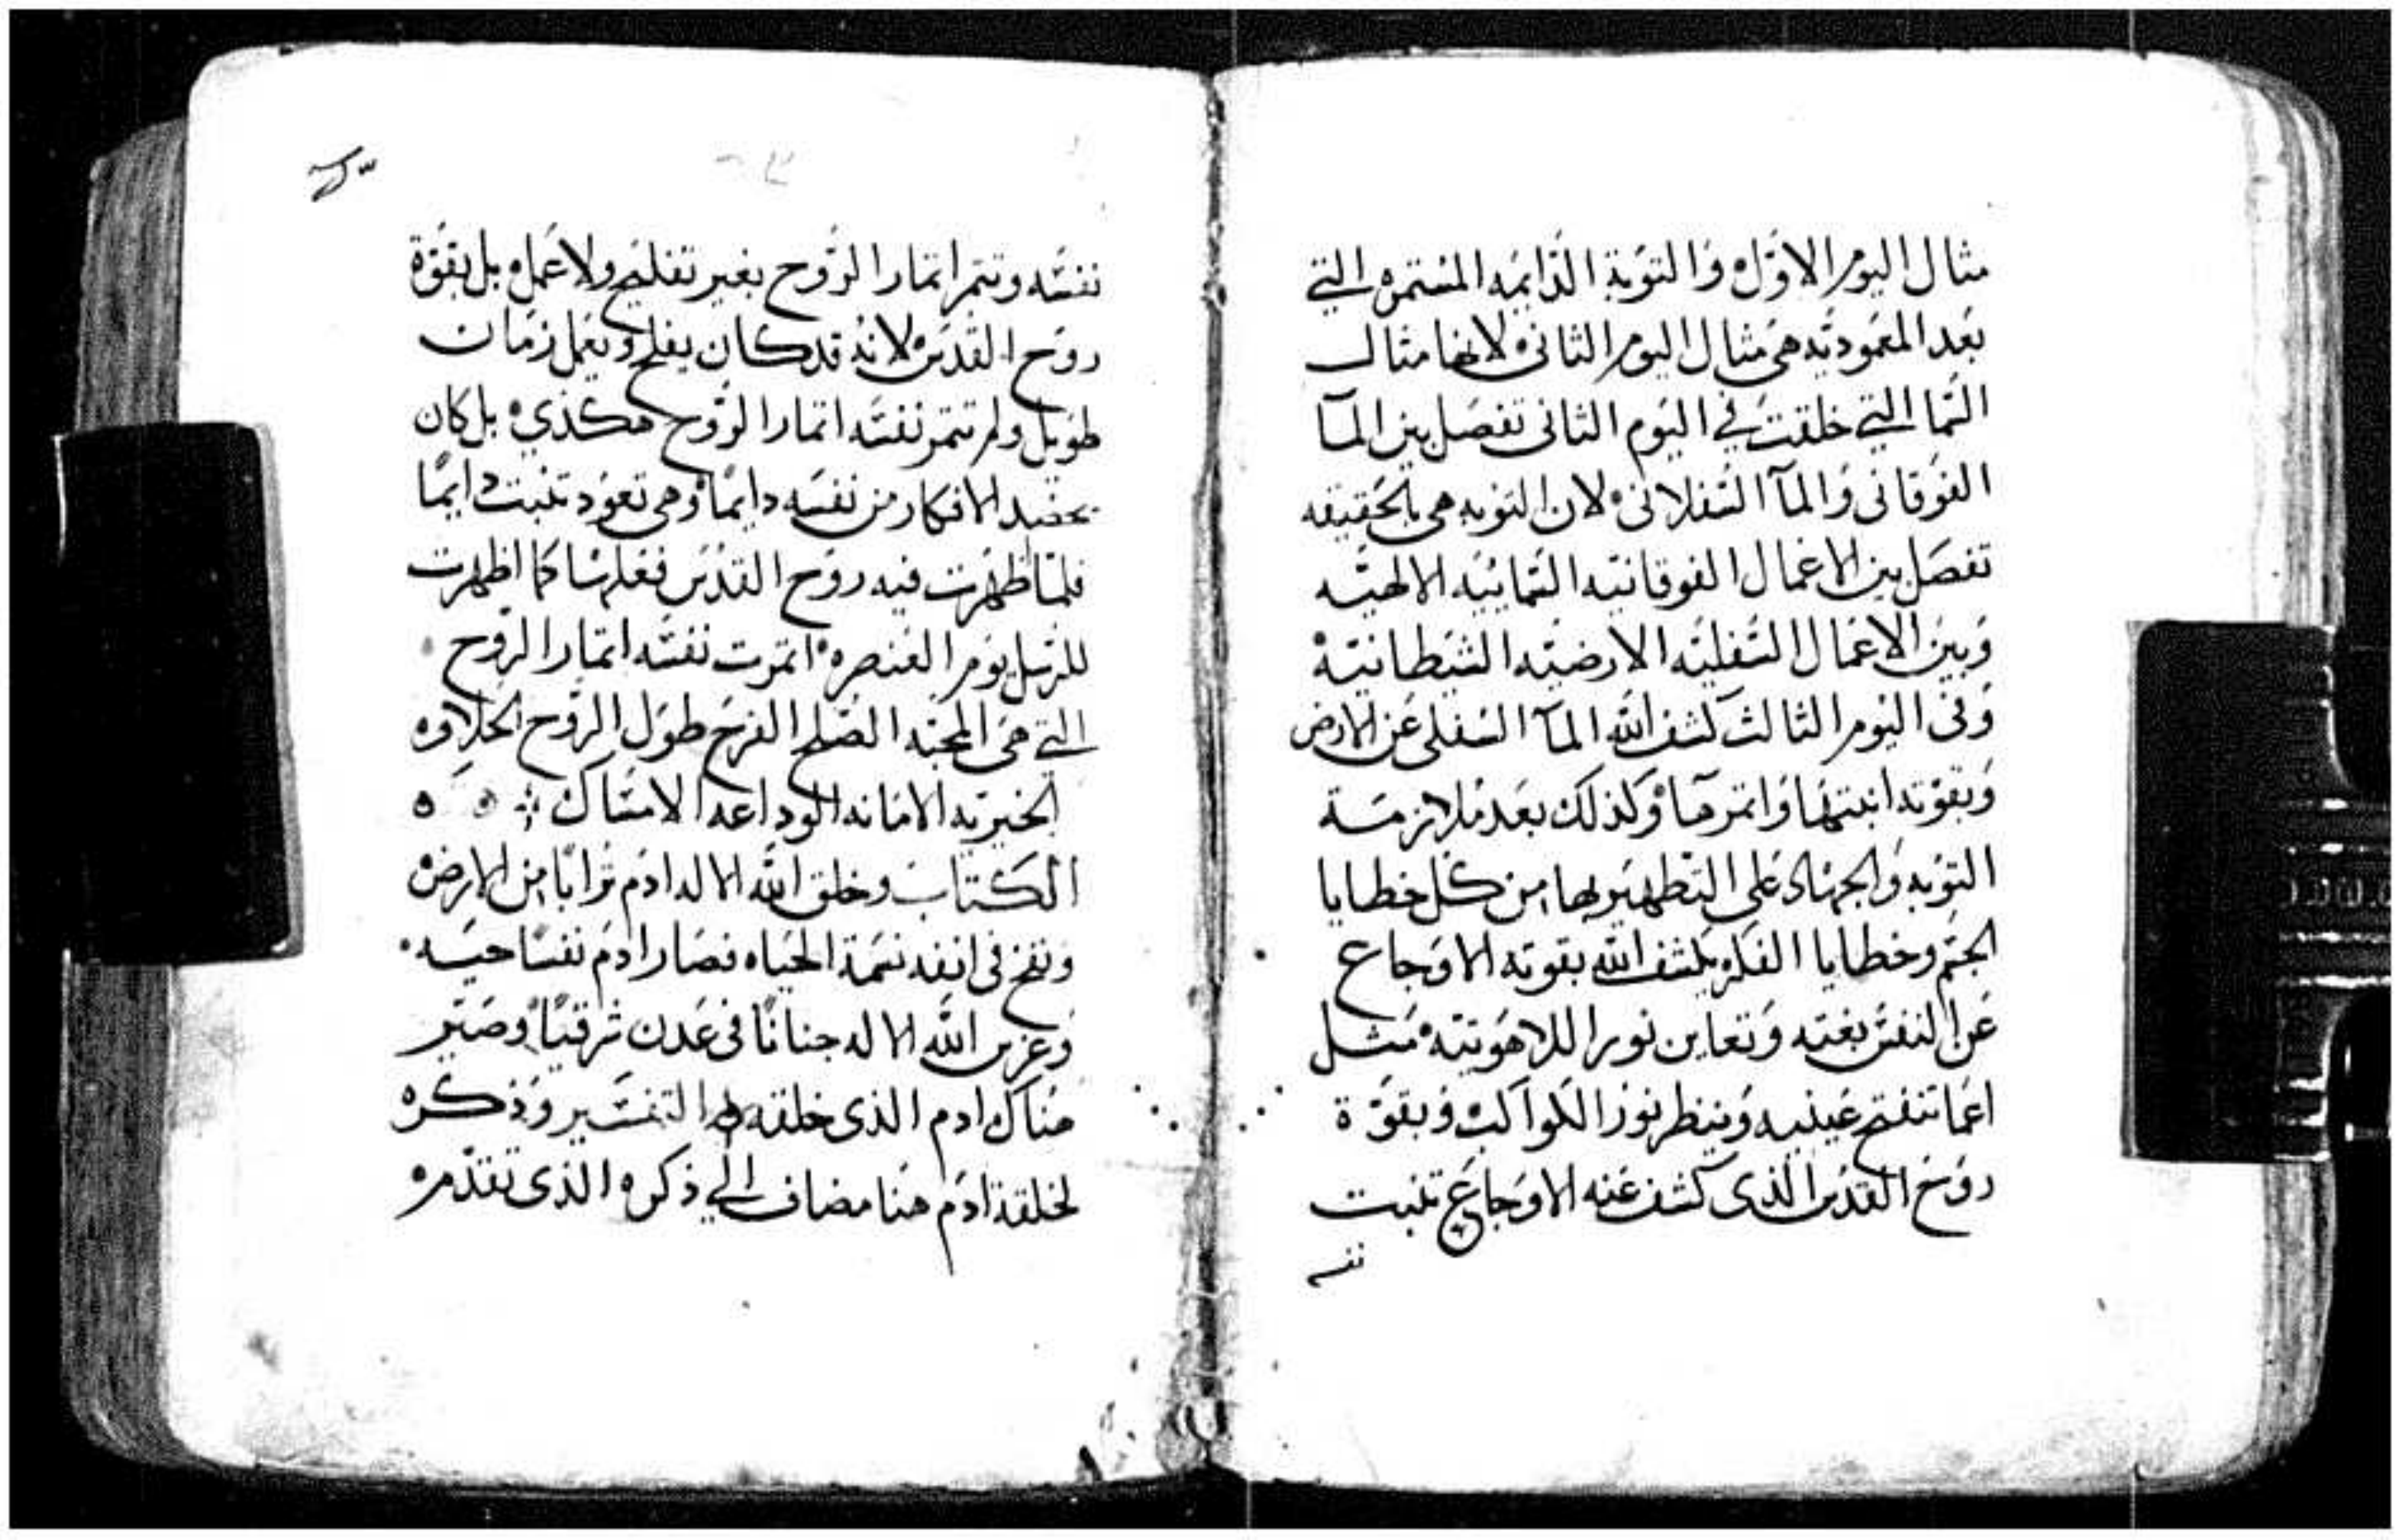 مثال اليوم الاوّل والتوبة الدّايمه المستمره التي
بعد المعموديّه هي مثال اليوم الثاني لانها مثال
السّما التي خلقت في اليوم الثاني تفصل بين المآ
الفوقاني والمآ السّفلاني لان التوبه هي بالحقيقه
تفصل بين الاعمال الفوقانيّه السّمائيّه الالهيّه
وبين الاعمال السّفليّه الارضيّه الشيطانيّه
وفى اليوم الثالث كشف الله المآ السفلي عن الارض
وبقوّته انبتها واتمرها وكذلك بعد ملازمة
التوبه والجهاد على التطهير بها من كل خطايا
الجسم وخطايا الفكر يكشف الله بقوته الاوجاع
عن النفس بغته وتعاين نور اللاهوتيّه مثل
اعما تنفتح عينيه وينظر نور الكواكب وبقوّة
روح القدس الذى كشف عنه الاوجاع تنبت
نفسه
نفسه وتتمر اتمار الرّوح بغير تفليح ولا عمل بل بقوّة
روح القدس لانه قد كان يفلح ويعمل زمان
طويل ولم تتمر نفسه اتمار الرّوح هكذي بل كان
يحصد الافكار من نفسه دايمًا وهي تعود تنبت دايمًا
فلمّا ظهرت فيه روح القدس فعلها كما اظهرت
للرسل يوم العنصره اتمرت نفسه اتمار الرّوح
التي هي المحبّه الصّلح الفرح طول الرّوح الحلاوه
الخيريّه الامانه الوداعه الامساك
الكتاب وخلق الله الاله ادم ترابًا من الارض
ونفخ فى انفه نسمة الحياه فصار ادم نفسًا حيّه
وغرس الله الاله جنانًا فى عدن شرقيًا وصيّر
هناك ادم الذى خلقه التفسير وذكره
لخلقة ادم هنا مضاف الي ذكره الذى تقدّمه